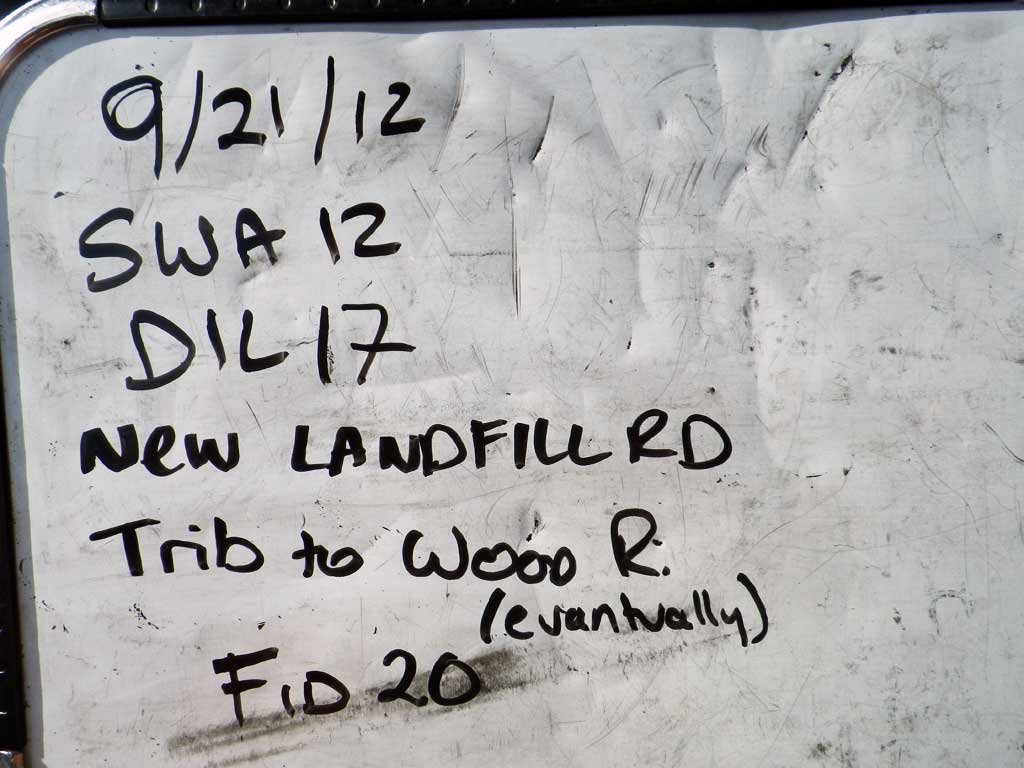 9/21/12
SWA 12
DIL 17
New LANDFILL RD
Trib to Wood R.
(evantually)
FID 20